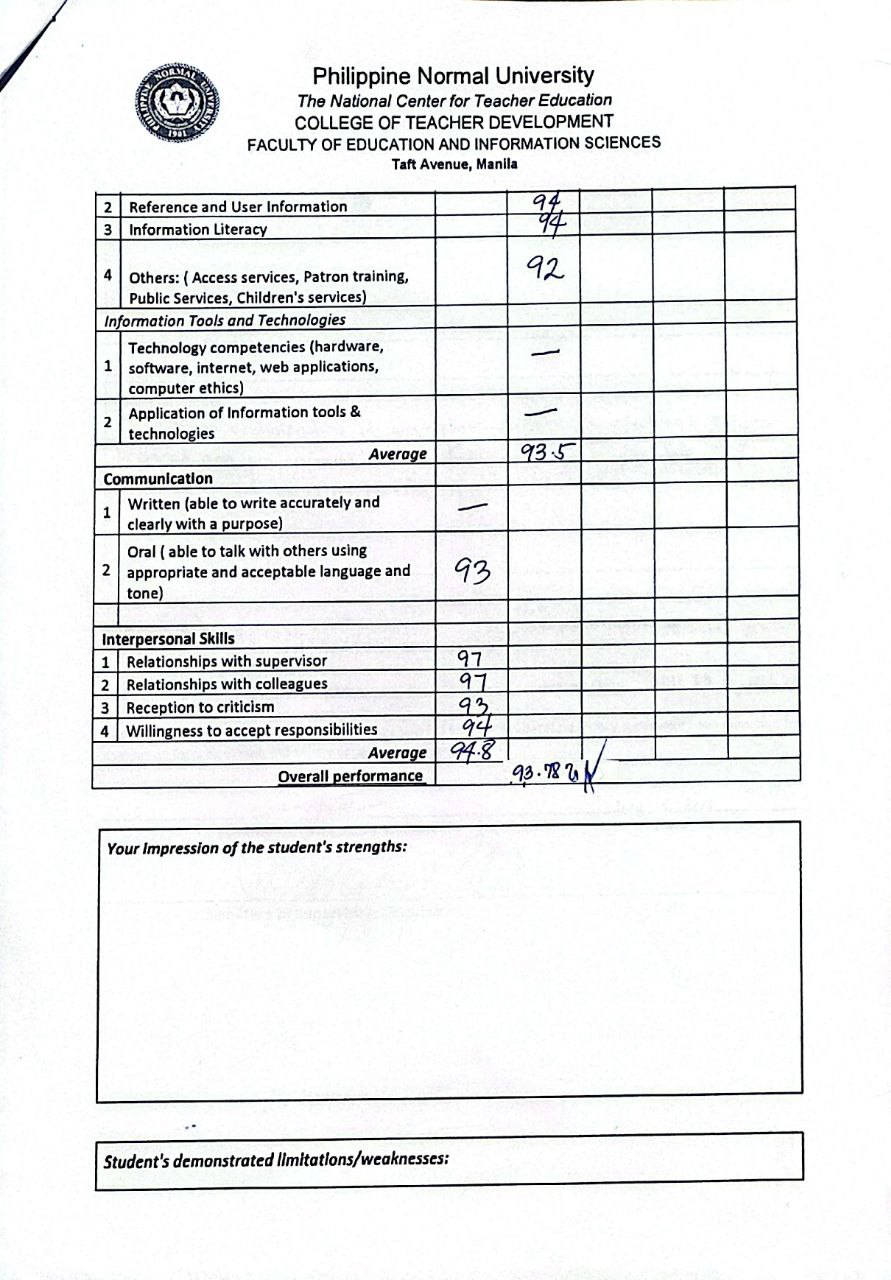 PHILIPPINE NORMAL UNIVERSITY
1901
Philippine Normal University
The National Center for Teacher Education
COLLEGE OF TEACHER DEVELOPMENT
FACULTY OF EDUCATION AND INFORMATION SCIENCES
Taft Avenue, Manila
2 Reference and User Information 94
3 Information Literacy 94
4 Others: ( Access services, Patron training, 92
Public Services, Children's services)
Information Tools and Technologies
1 Technology competencies (hardware, —
software, internet, web applications,
computer ethics)
2 Application of Information tools & —
technologies
Average 93.5
Communication
1 Written (able to write accurately and —
clearly with a purpose)
2 Oral ( able to talk with others using 93
appropriate and acceptable language and
tone)
Interpersonal Skills
1 Relationships with supervisor 97
2 Relationships with colleagues 97
3 Reception to criticism 93
4 Willingness to accept responsibilities 94
Average 94.8
Overall performance 93.78
Your Impression of the student's strengths:
Student's demonstrated limitations/weaknesses: